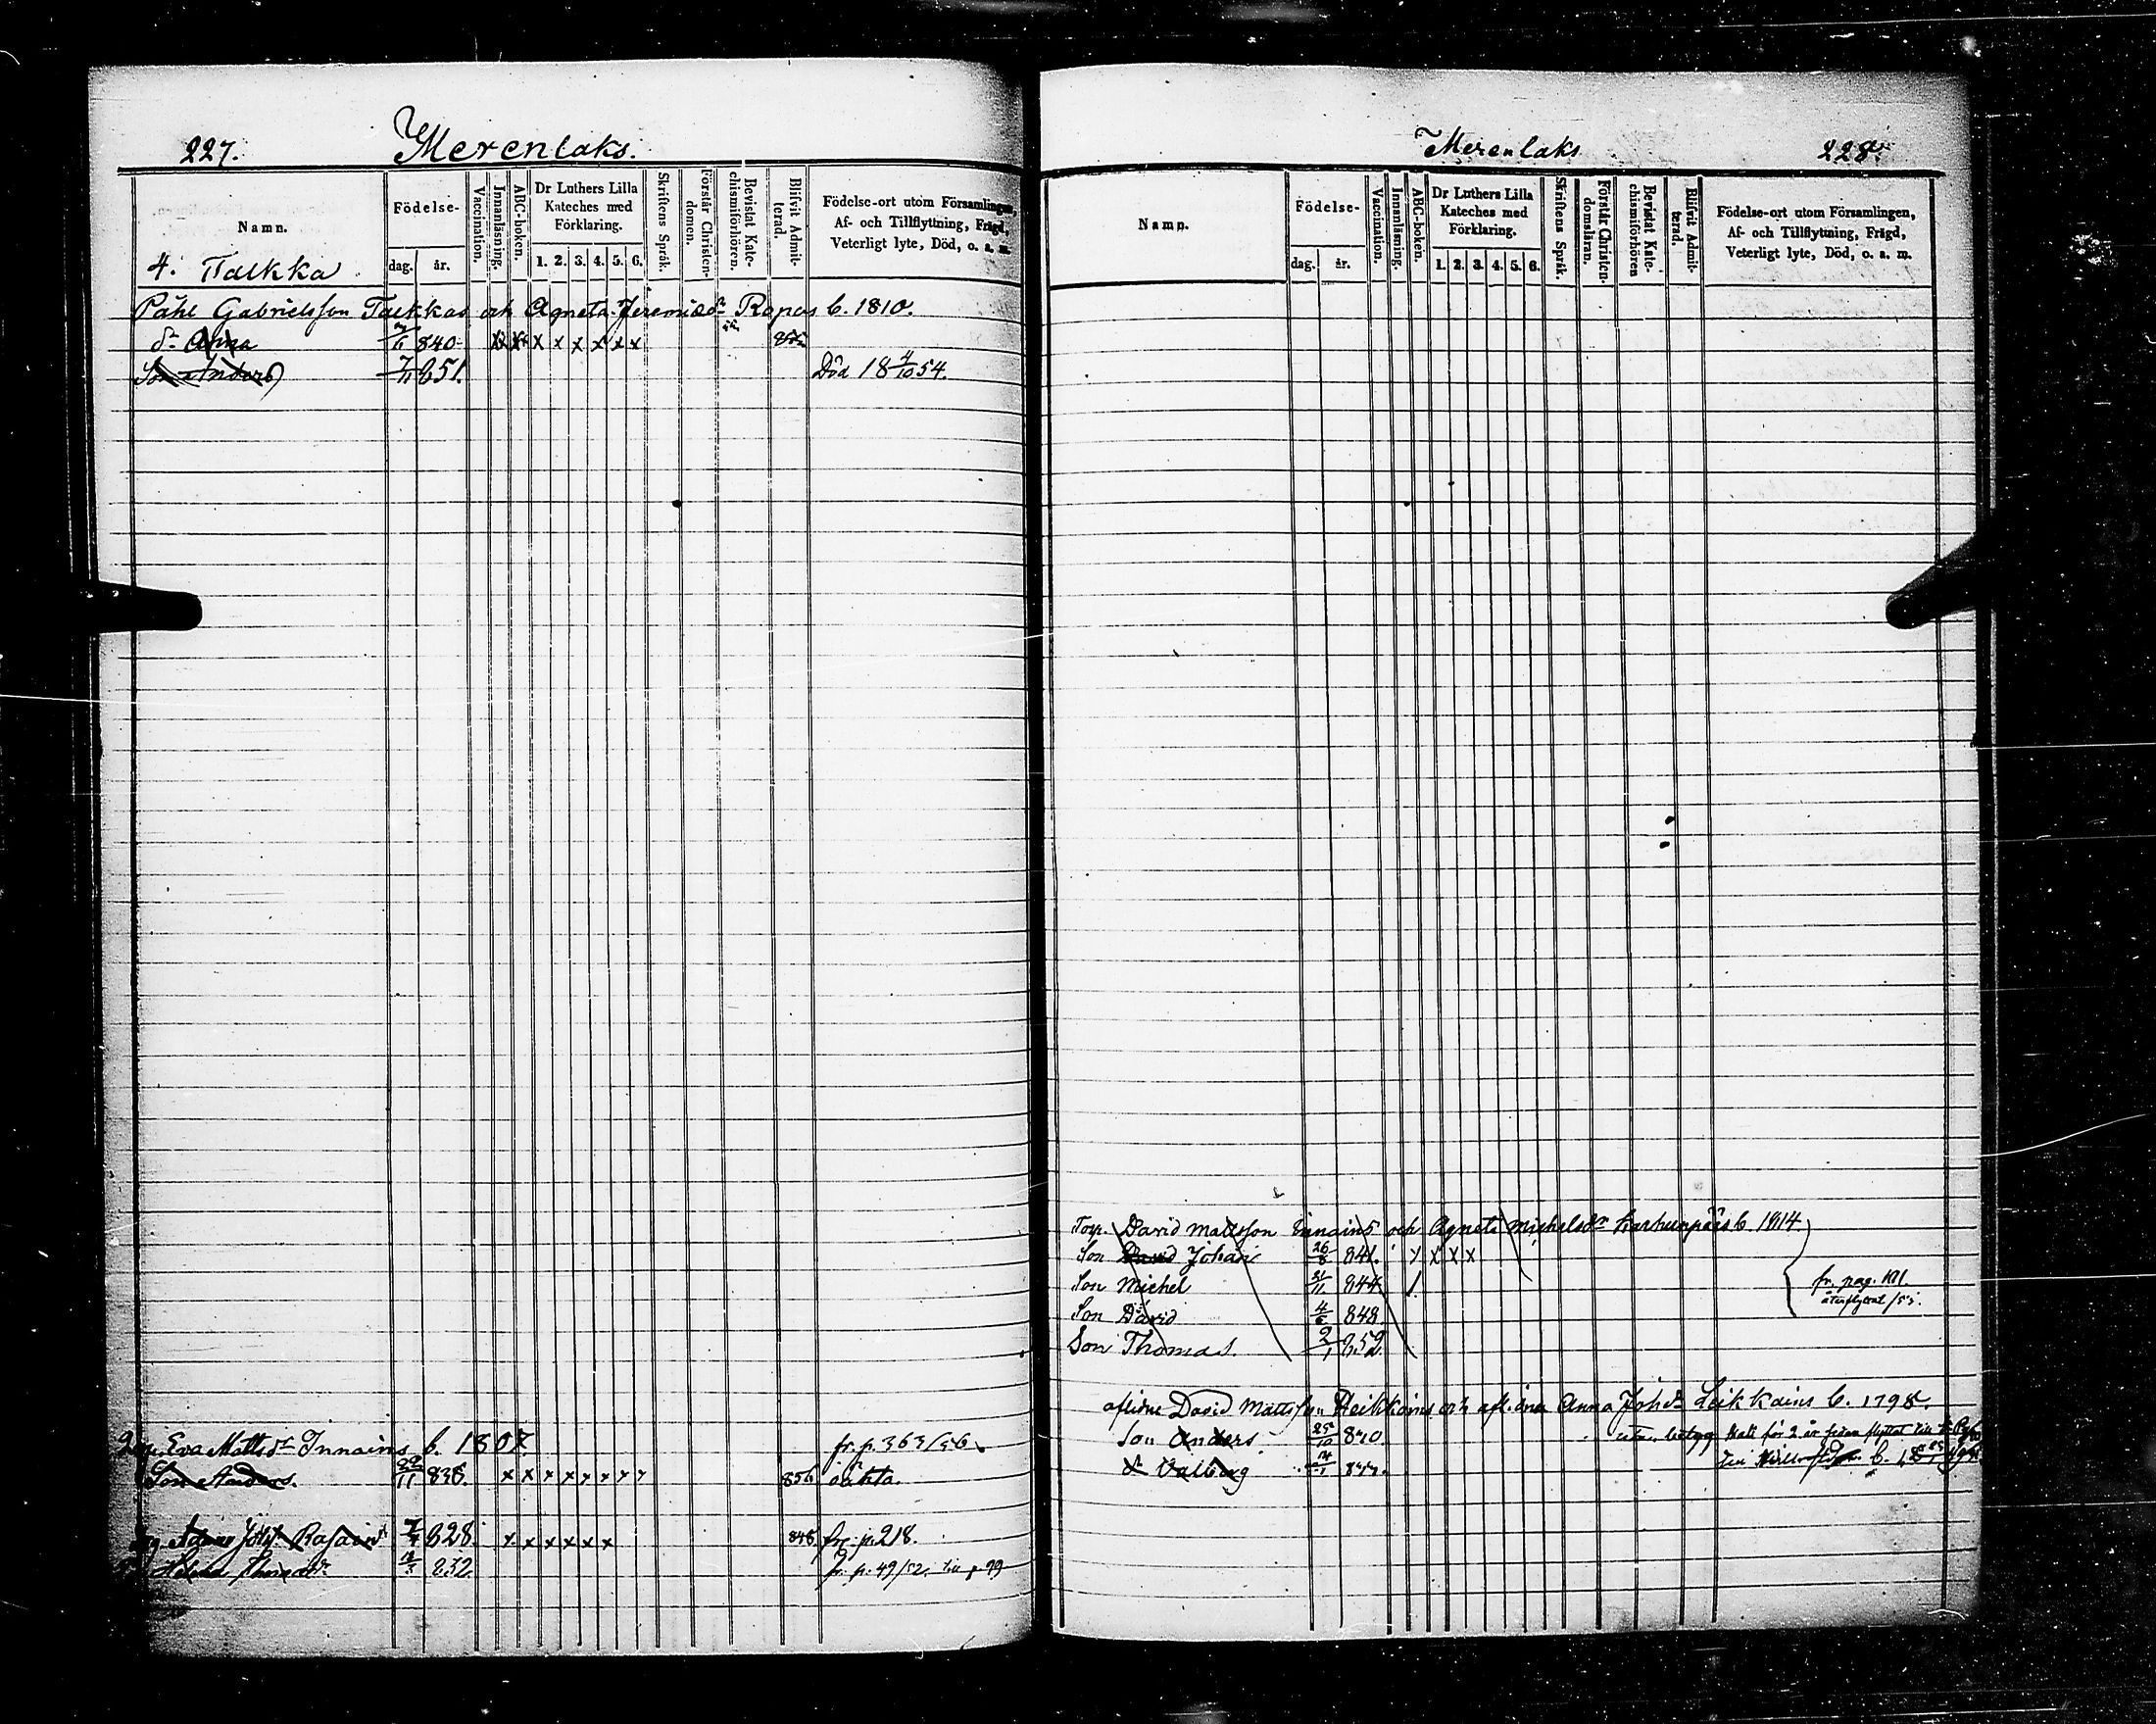 227. Merenlaks.
Namn. Födelse- dag. år. Vaccination. Innanläsning. ABC-boken. Dr Luthers Lilla Kateches med Förklaring. 1. 2. 3. 4. 5. 6. Skriftens Språk. Förstår Christen-domen. Bevistat Kate-chismiförhören. Blifvit Admit-terad. Födelse-ort utom Församlingen, Af- och Tillflyttning, Frägd, Veterligt lyte, Död, o. a. m.
4. Talkka
Påhl Gabrielsson Talkkas och Agneta Jeremiædr Rapos b. 1810.
dr Anna 840 x x x x x x x x
Son Anders 7/11 851. Död 18 4/10 54.
Eva Mattsdr Innains b. 1807 fr. p. 363/56
Son Anders. 22/11 838. x x x x x x x x 856
828 x x x x x x 848 fr. p. 218.
Helena 832 fr. p. 49/52. till p. 99
Merenlaks 228
Namn. Födelse- dag. år. Vaccination. Innanläsning. ABC-boken. Dr Luthers Lilla Kateches med Förklaring. 1. 2. 3. 4. 5. 6. Skriftens Språk. Förstår Christen-domsläran. Bevistat Kate-chismiförhören Blifvit Admit-terad. Födelse-ort utom Församlingen, Af- och Tillflyttning, Frägd, Veterligt lyte, Död, o. a. m.
Torp. David Mattsson Innains och Agneta Michelsdr Karhunpääs b. 1814
Son David Johan 26/8 841. x x x
Son Michel 21/11 844 fr. pag. 101.
återflyttat /55.
Son David 4/6 848
Son Thomas. 2/1 852
aflidne David Mattsson Heikkains och aflidna Anna Johdr Leikkains b. 1798.
Son Anders. 25/10 840 utan betyg skall för 2 år sedan flyttat till
dr Valborg